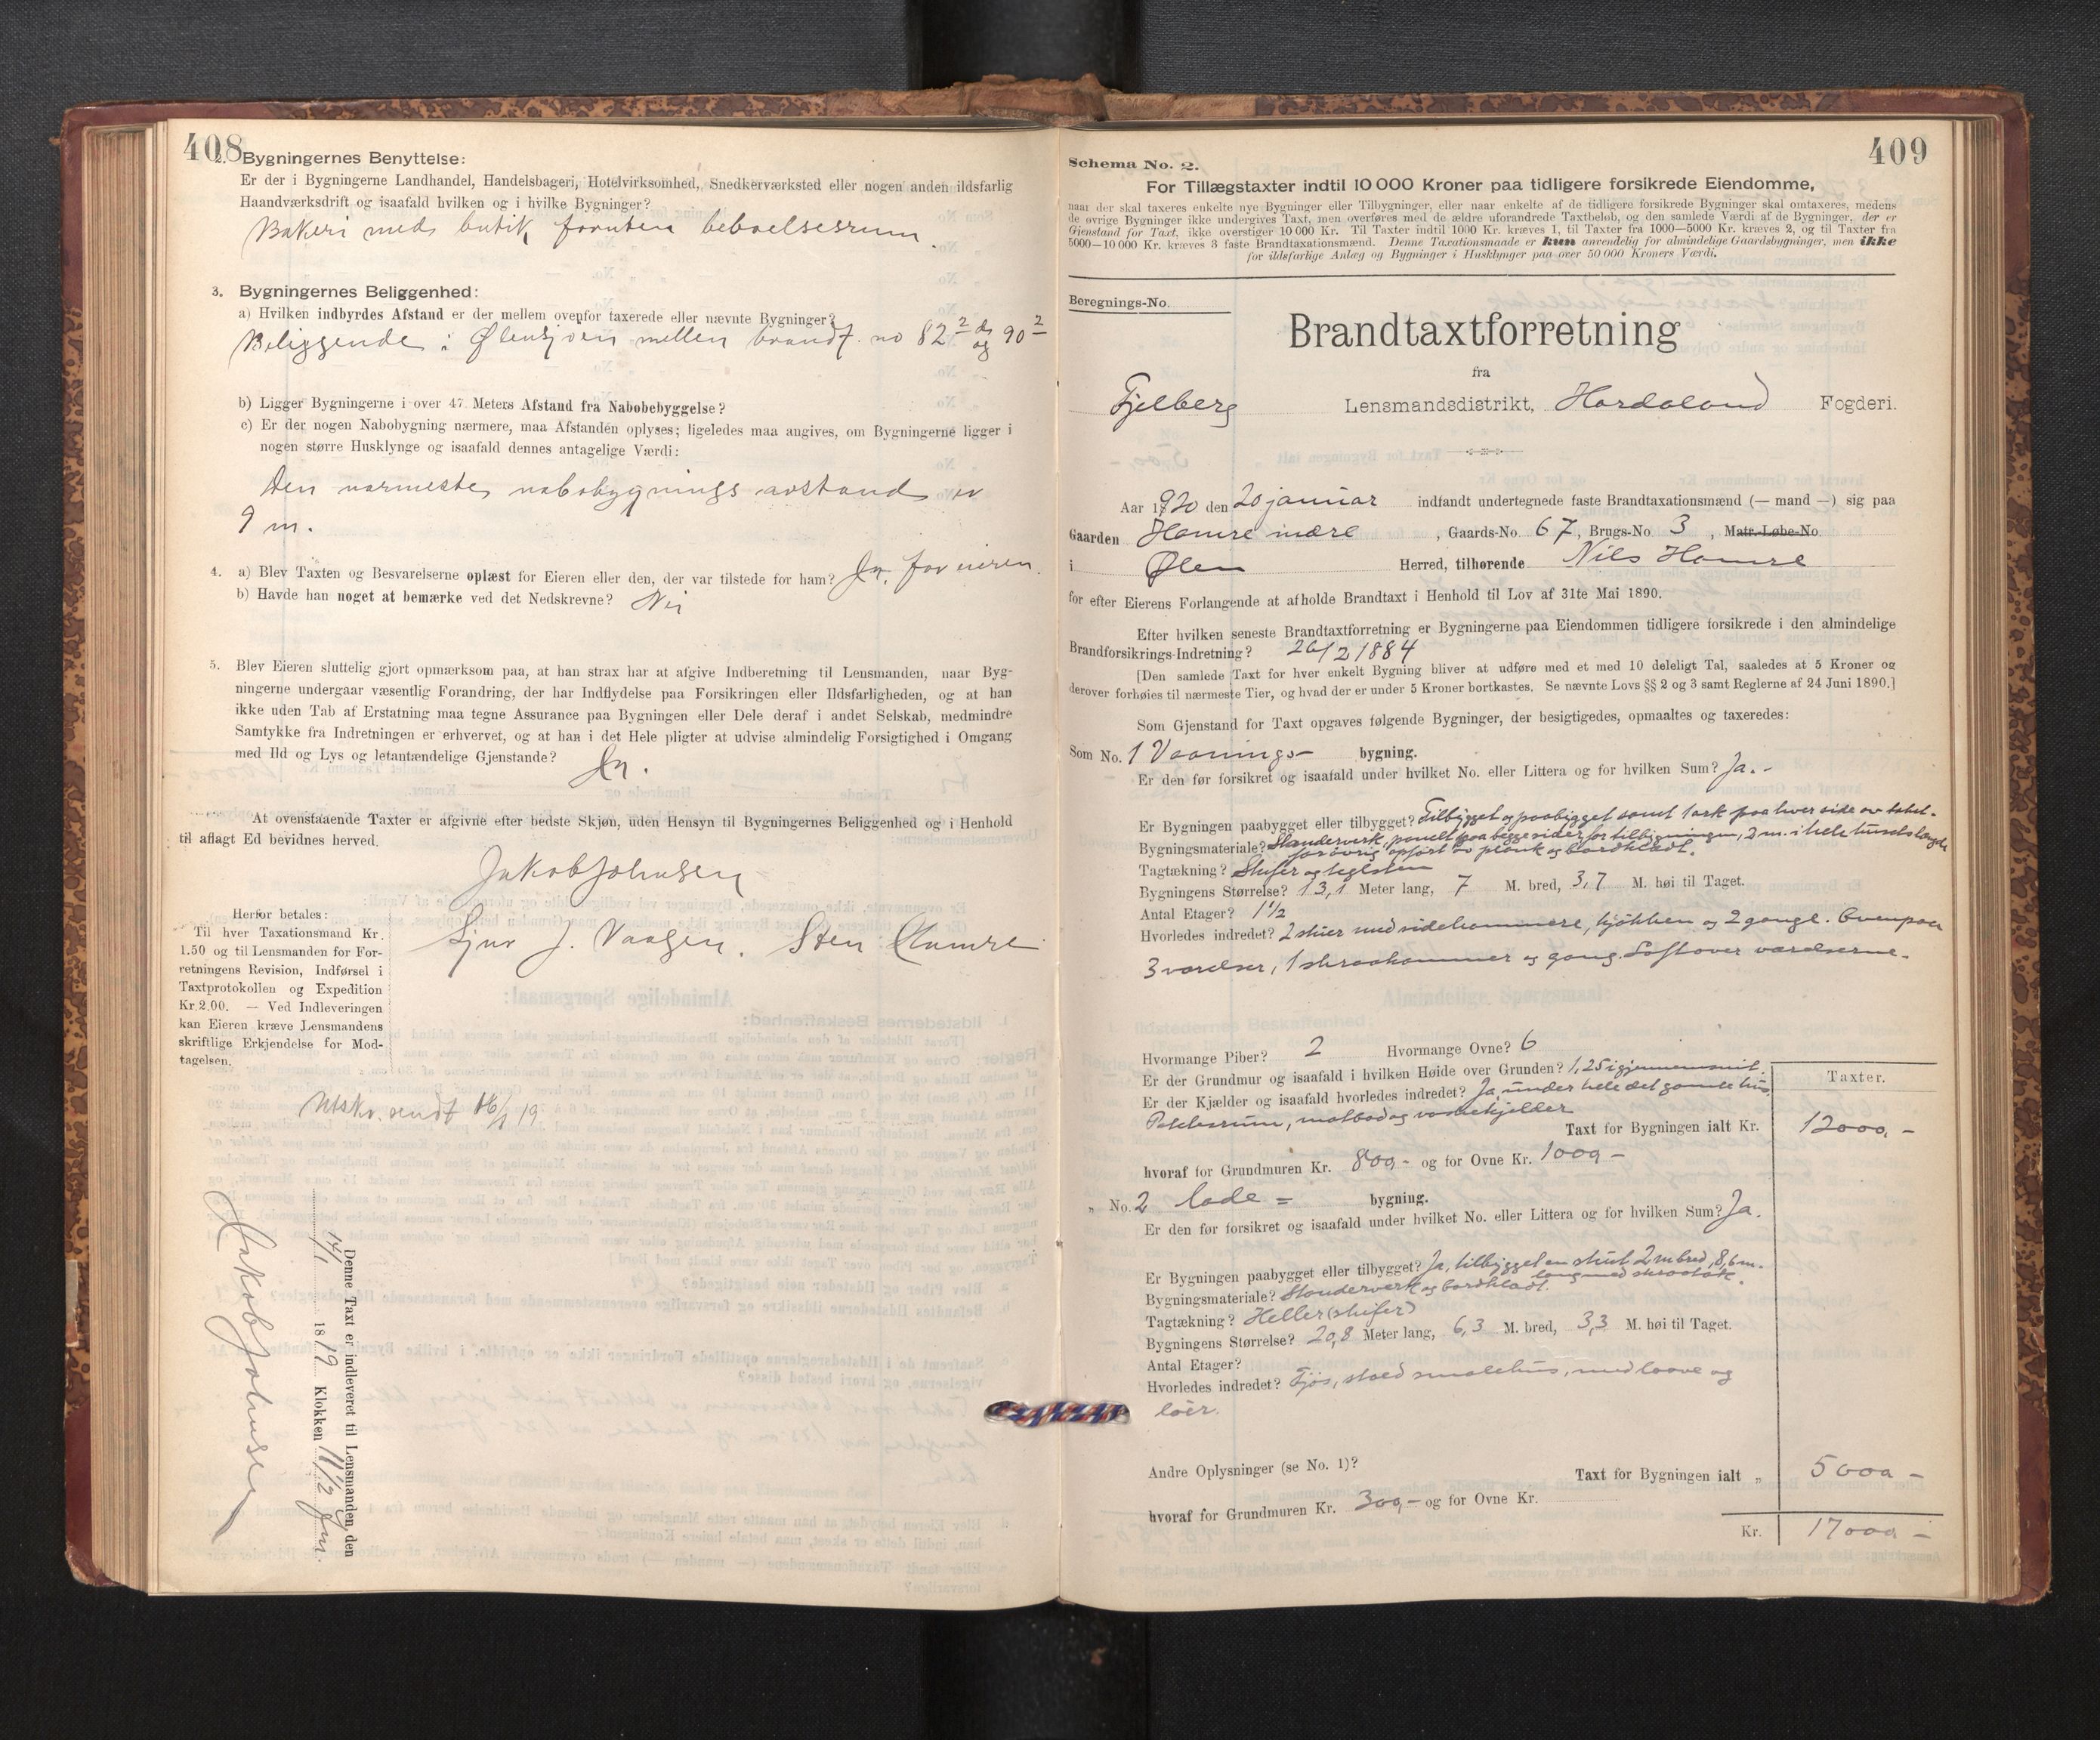 408
2. Bygningernes Benyttelse:
Er der i Bygningerne Landhandel, Handelsbageri, Hotelvirksomhed, Snedkerværksted eller nogen anden ildsfarlig
Haandværksdrift og isaafald hvilken og i hvilke Bygninger?
Bakeri med butik foruten beboelsesrum.
3. Bygningernes Beliggenhed:
a) Hvilken indbyrdes Afstand er der mellem ovenfor taxerede eller nævnte Bygninger?
Beliggende i Ølensjøen mellen brandt. no 82 og 90
b) Ligger Bygningerne i over 47 Meters Afstand fra Nabobebyggelse?
c) Er der nogen Nabobygning nærmere, maa Afstanden oplyses; ligeledes maa angives, om Bygningerne ligger i
nogen større Husklynge og isaafald dennes antagelige Værdi:
Den nærmeste nabobygnings avstand er
9 m.
4. a) Blev Taxten og Besvarelserne oplæst for Eieren eller den, der var tilstede for ham? Ja, for eieren.
b) Havde han noget at bemærke ved det Nedskrevne? Nei
5. Blev Eieren sluttelig gjort opmærksom paa, at han strax har at afgive Indberetning til Lensmanden, naar Byg-
ningerne undergaar væsentlig Forandring, der har Indflydelse paa Forsikringen eller Ildsfarligheden, og at han
ikke uden Tab af Erstatning maa tegne Assurance paa Bygningen eller Dele deraf i andet Selskab, medmindre
Samtykke fra Indretningen er erhvervet, og at han i det Hele pligter at udvise almindelig Forsigtighed i Omgang
med Ild og Lys og letantændelige Gjenstande? Ja.
At ovenstaaende Taxter er afgivne efter bedste Skjøn, uden Hensyn til Bygningernes Beliggenhed og i Henhold
til aflagt Ed bevidnes herved.
Jakob Johnsen
Sjur J. Vaagen. Sten Hamre
Herfor betales:
Til hver Taxationsmand Kr.
1.50 og til Lensmanden for For-
retningens Revision, Indførsel i
Taxtprotokollen og Expedition
Kr. 2.00. — Ved Indleveringen
kan Eieren kræve Lensmandens
skriftlige Erkjendelse for Mod-
tagelsen.
Utskr. sendt 16/1 19.
Denne Taxt er indleveret til Lensmanden den
14/1 1819 Klokken 11 1/2 fm.
Jakob Johnsen
409
Schema No. 2.
For Tillægstaxter indtil 10 000 Kroner paa tidligere forsikrede Eiendomme,
naar der skal taxeres enkelte nye Bygninger eller Tilbygninger, eller naar enkelte af de tidligere forsikrede Bygninger skal omtaxeres, medens
de øvrige Bygninger ikke undergives Taxt, men overføres med de ældre uforandrede Taxtbeløb, og den samlede Værdi af de Bygninger, der er
Gjenstand for Taxt, ikke overstiger 10 000 Kr. Til Taxter indtil 1000 Kr. kræves 1, til Taxter fra 1000—5000 Kr. kræves 2, og til Taxter fra
5000—10 000 Kr. kræves 3 faste Brandtaxationsmænd. Denne Taxationsmaade er kun anvendelig for almindelige Gaardsbygninger, men ikke
for ildsfarlige Anlæg og Bygninger i Husklynger paa over 50 000 Kroners Værdi.
Beregnings-No.
Brandtaxtforretning
fra
Fjelberg Lensmandsdistrikt, Hordaland Fogderi.
Aar 1920 den 20 januar indfandt undertegnede faste Brandtaxationsmænd (— mand —) sig paa
Gaarden Hamre indre, Gaards-No. 67, Brugs-No. 3, Matr.-Løbe-No.
i Ølen Herred, tilhørende Nils Hamre
for efter Eierens Forlangende at afholde Brandtaxt i Henhold til Lov af 31te Mai 1890.
Efter hvilken seneste Brandtaxtforretning er Bygningerne paa Eiendommen tidligere forsikrede i den almindelige
Brandforsikrings-Indretning? 26/2 1884
[Den samlede Taxt for hver enkelt Bygning bliver at udføre med et med 10 deleligt Tal, saaledes at 5 Kroner og
derover forhøies til nærmeste Tier, og hvad der er under 5 Kroner bortkastes. Se nævnte Lovs §§ 2 og 3 samt Reglerne af 24 Juni 1890.]
Som Gjenstand for Taxt opgaves følgende Bygninger, der besigtigedes, opmaaltes og taxeredes:
Som No. 1 Vaanings- bygning.
Er den før forsikret og isaafald under hvilket No. eller Littera og for hvilken Sum? Ja. -
Er Bygningen paabygget eller tilbygget? Tilbygget og paabygget samt 1 ark paa hver side av taket.
Bygningsmateriale? Standerverk, panelt paa begge sider for tilbygningen, 2 m. i hele husets længde
forøvrig opført av plank og bordklædt.
Tagtækning? Skifer og teglsten
Bygningens Størrelse? 13,1 Meter lang, 7 M. bred, 3,7 M. høi til Taget.
Antal Etager? 1 1/2
Hvorledes indredet? 2 stuer med sidekammere, kjøkken og 2 gange. Ovenpaa
3 værelser, 1 skraakammer og gang. Loft over værelserne.
Hvormange Piber? 2 Hvormange Ovne? 6
Er der Grundmur og isaafald i hvilken Høide over Grunden? 1,25 i gjennemsnit.
Er der Kjælder og isaafald hvorledes indredet? Ja, under hele det gamle hus.
matbod og
Taxter.
Taxt for Bygningen ialt Kr. 12000,-
hvoraf for Grundmuren Kr. 800,- og for Ovne Kr. 1000 -
" No. 2 Lade = bygning.
Er den før forsikret og isaafald under hvilket No. eller Littera og for hvilken Sum? Ja.
Er Bygningen paabygget eller tilbygget? Ja, tilbygget en skut 2 m bred, 8,6 m.
lang med skraatak.
Bygningsmateriale? Standerverk og bordklædt.
Tagtækning? Heller (skifer)
Bygningens Størrelse? 20,8 Meter lang, 6,3 M. bred, 3,3 M. høi til Taget.
Antal Etager?
Hvorledes indredet? Fjøs, stald smalehus, med laave og
løer.
Andre Oplysninger (se No. 1)?
Taxt for Bygningen ialt " 5000 -
hvoraf for Grundmuren Kr. 300,- og for Ovne Kr.
Kr. 17000 -